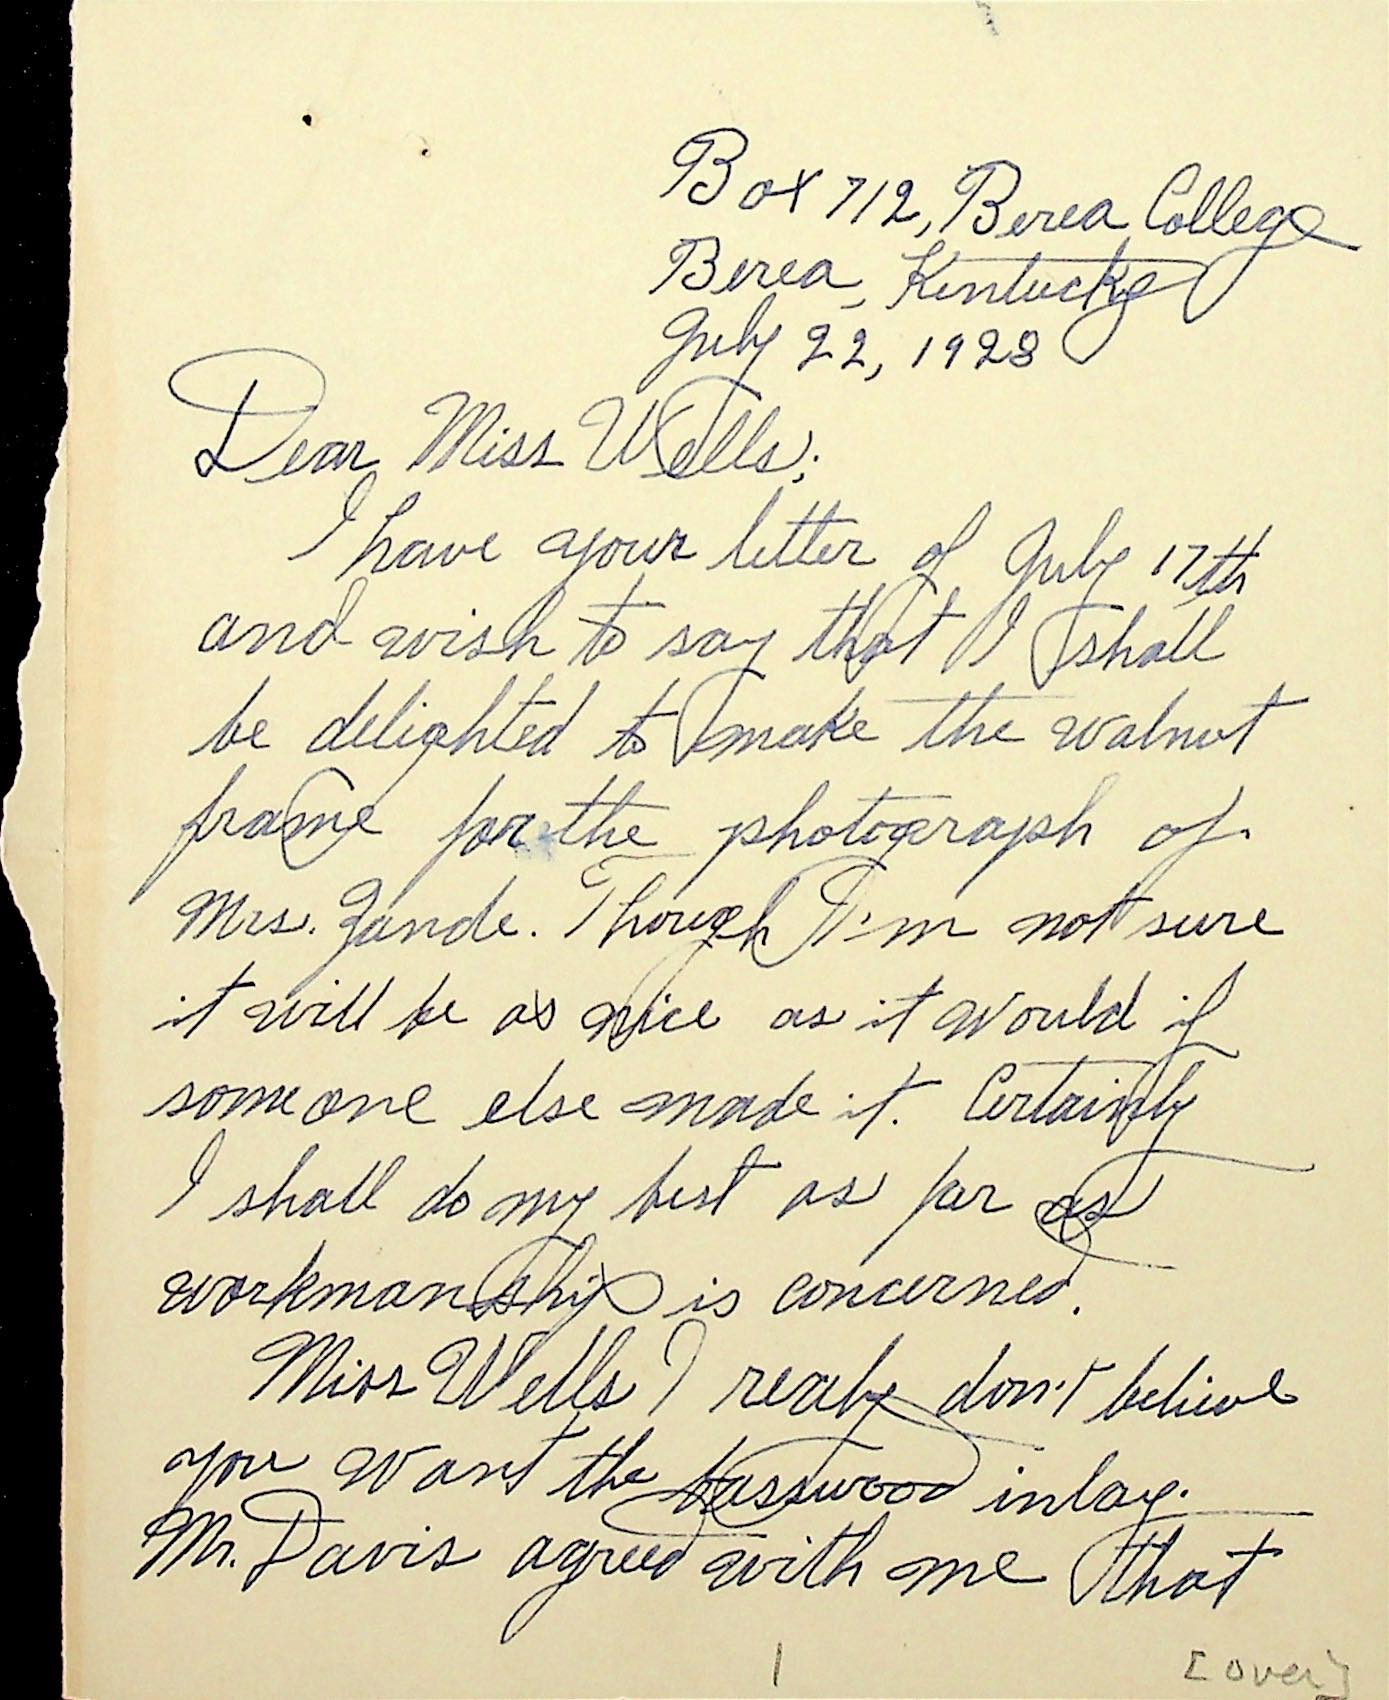 Box 712, Berea College
Berea, Kentucky
July 22, 1928
Dear Miss Wells;
I have your letter of July 17th
and wish to say that I shall
be delighted to make the walnut
frame for the photograph of
Mrs. Zande. Though I'm not sure
it will be as nice as it would if
someone else made it. Certainly
I shall do my best as far as
workmanship is concerned.
Miss Wells I realy don't believe
you want the basswood inlay.
Mr. Davis agreed with me that
1 [over]